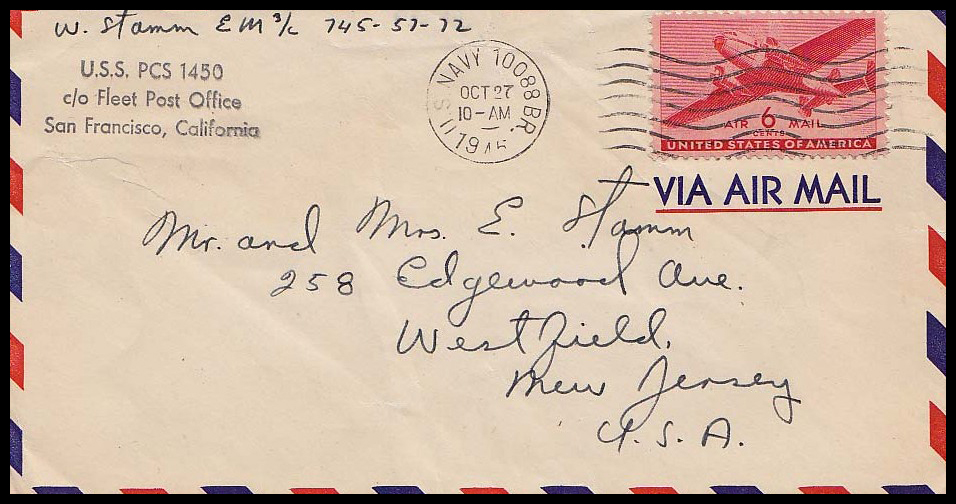 W. Stamm E M 3/c 745-57-72
U.S.S. PCS 1450
c/o Fleet Post Office
San Francisco, California
U.S. NAVY 10088 BR.
OCT 27
10-AM
1945
AIR 6 MAIL
CENTS
UNITED STATES OF AMERICA
VIA AIR MAIL
Mr. and Mrs. E. Stamm
258 Edgewood Ave.
Westfield,
New Jersey
U.S.A.